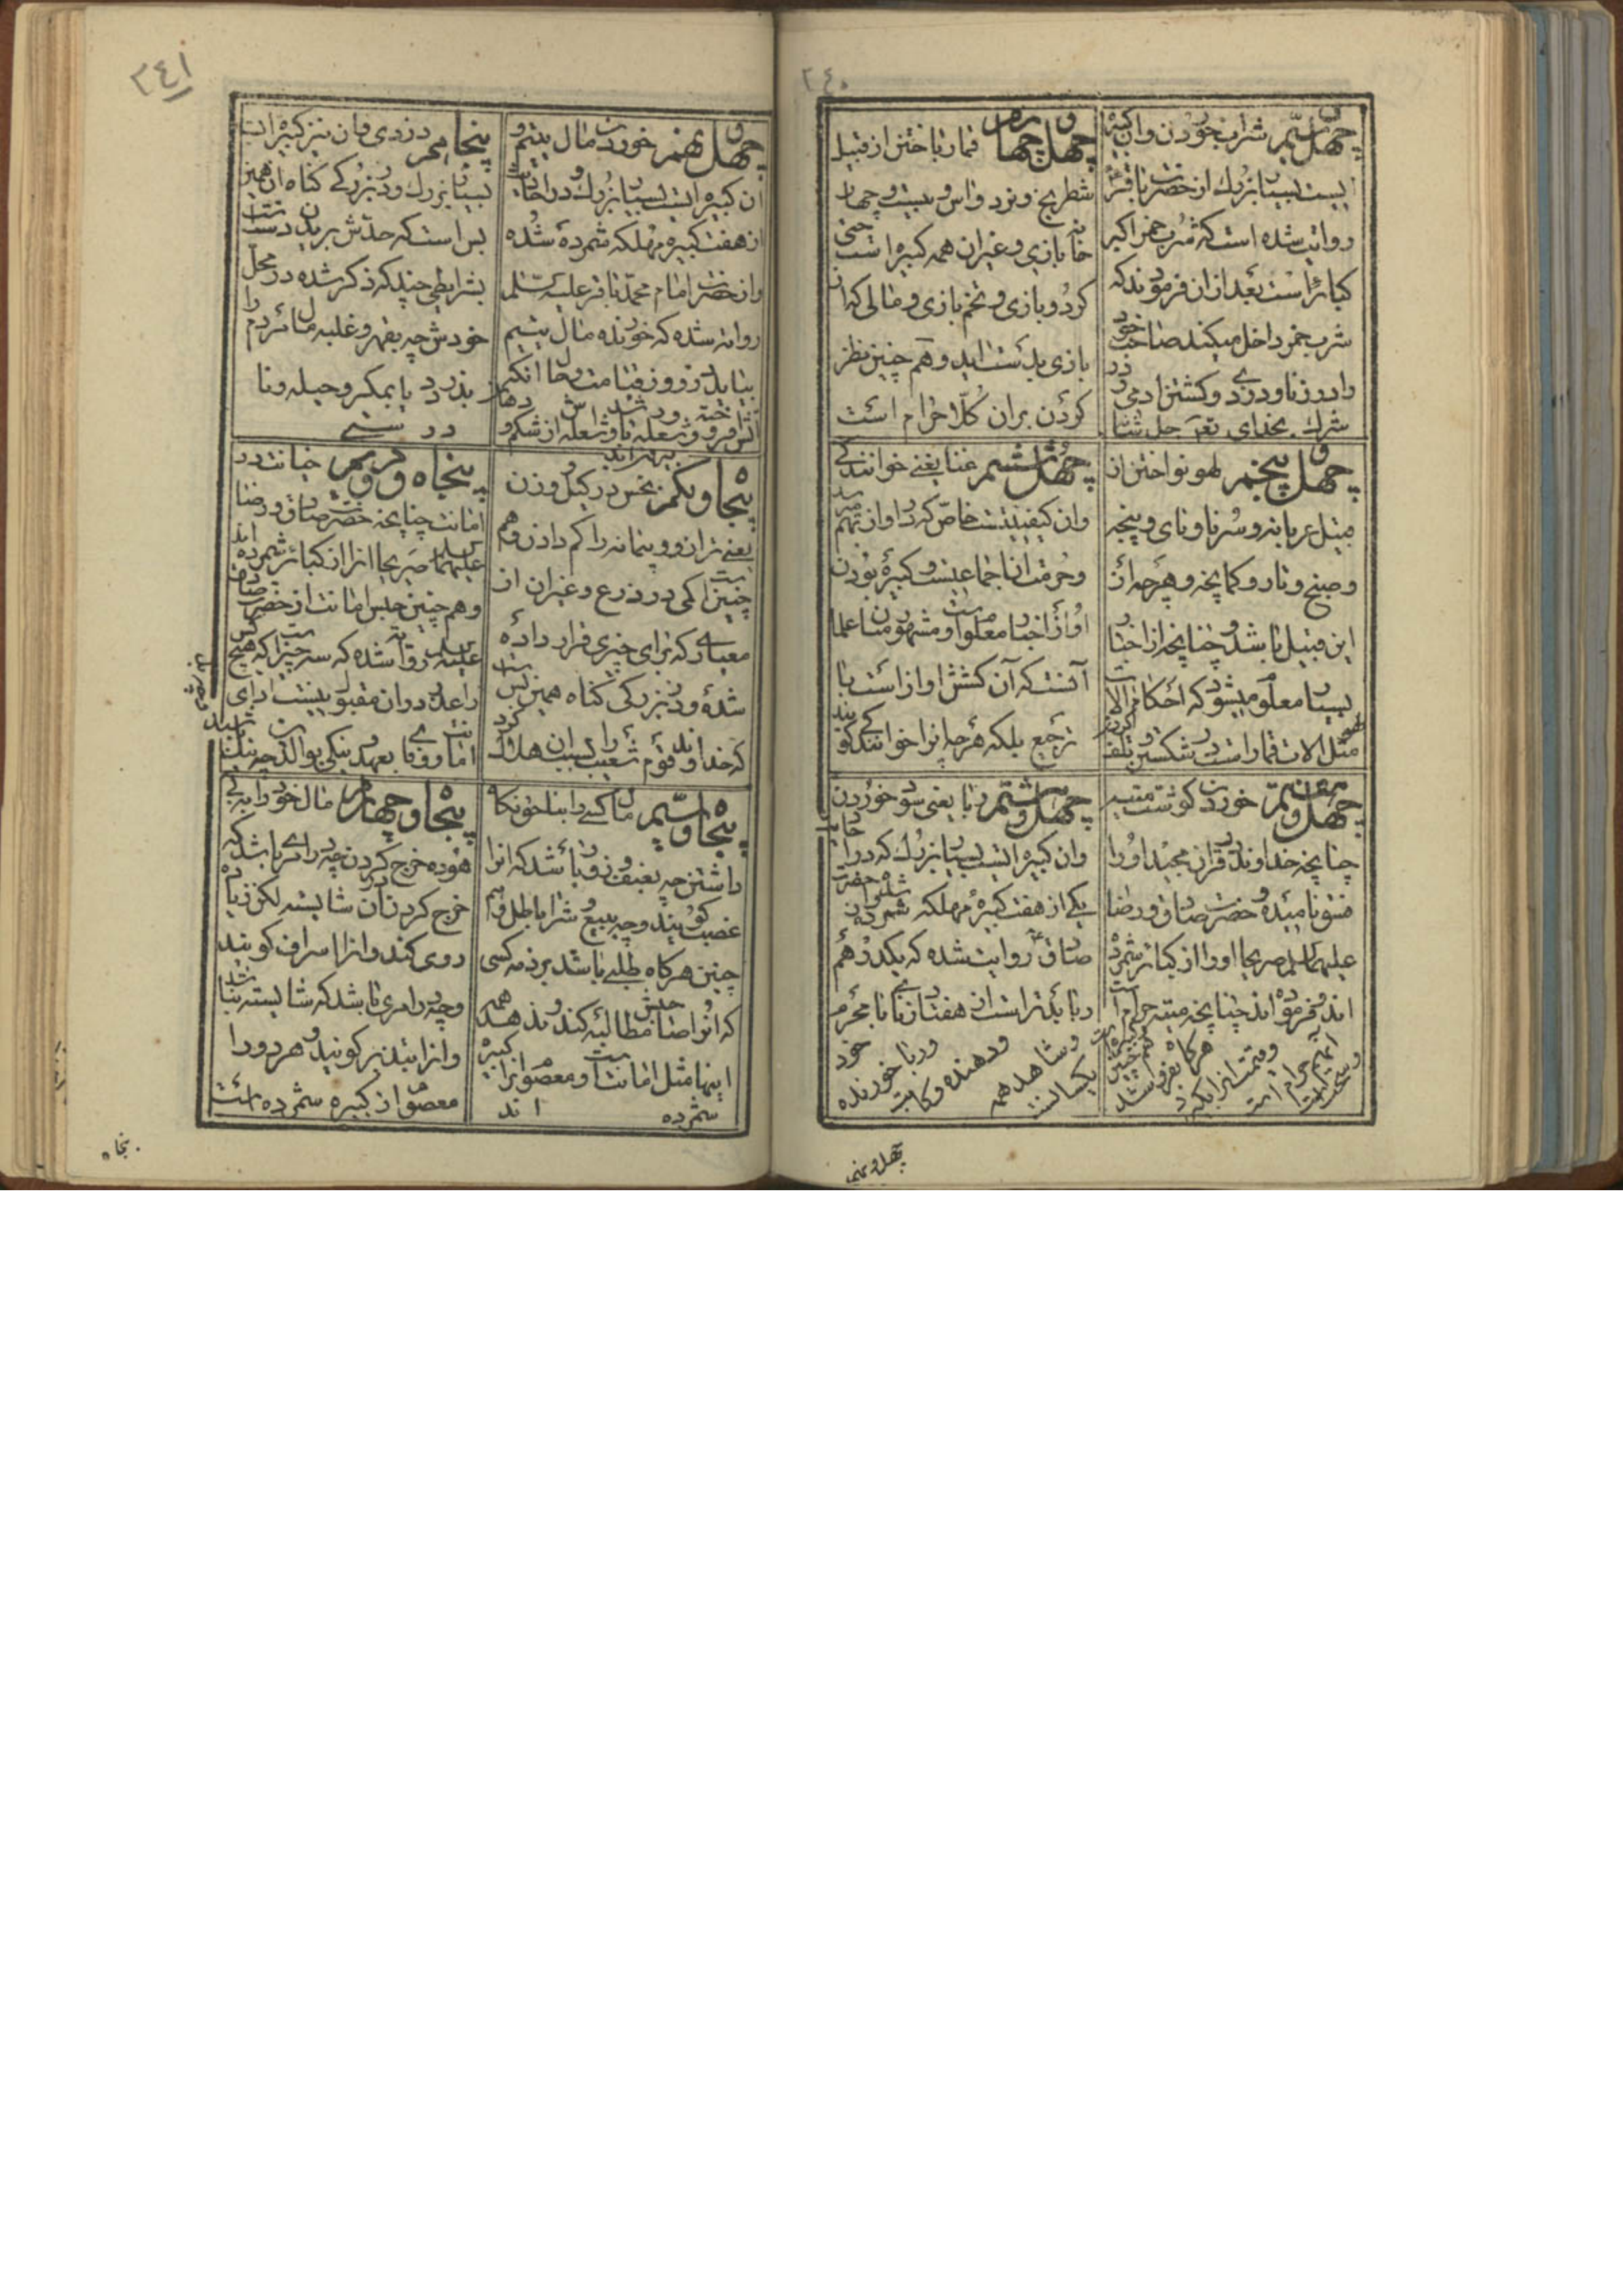 ٢٤٠
چهل و سیم شراب خوردن و ان کبیره
ایست بسیار بزرك از حضرت باقر
روایت شده است که شرب خمر اکبر
کبائر است بعد از ان فرمودند که
شرب خمر داخل میکند صاحب خود
را در زنا و دزدی و کشتن ادمی و در
شرك بخدای
چهل و چهارم قمار باختن از قبیل
شطرنج و نرد و اس و بیست و چهار
خانه بازی و غیر ان همه کبیره است حتی
کردو بازی و تخم بازی و مالی که از ان
بازی بدست اید و هم چنین نظر
کردن بران کلا حرام است
چهل و پنجم لهو نواختن از
مثل عربانه و سرنا و نای و پنجه
و صنج و تار و کمانچه و هر چه از
این قبیل باشد و چنانچه از اخبار
بسیار معلوم میشود که احکام الات
لهو مثل الات قمار است در شکستن و تلف کردن
چهل و ششم غنا یعنی خوانندکی
وان کیفیتیست خاص که در اواز بهم میرسد
و حرمت ان اجماعیست و کبیره بودن
او از اخبار معلوم است و مشهور میان علما
آنست که آن کشش اواز است با
ترجیع بلکه هر چه انرا خوانندکی کویند
چهل و هفتم خوردن کوشت میته
چنانچه خداوند در قران مجید او را
فسق نامیده و حضرت صادق و رضا
علیهما السلم صریحا او را از کبائر شمرده
اند و فرموده اند چنانچه میته حرام است
چهل و هشتم ربا یعنی سود خوردن
وان کبیره ایست بسیار بزرك که در اخبار
یکی از هفت کبیره مهلکه شمرده شده از حضرت
صادق ع روایت شده که یکدرهم
ربا بدتر است از هفتاد زنای با محرم
خود و ربا خورنده
و دهنده و کاتب
و شاهد همه
یکسانست
چهل و نهم
٢٤١
چهل و نهم خوردن مال یتیم و
ان کبیره ایست بسیار بزرك و در احادیث
از هفت کبیره مهلکه شمرده شده
و از حضرت امام محمد باقر علیه السلم
روایت شده که خورنده مال یتیم
بیاید در روز قیامت و حال انکه
آتش افروخته و شعله ور باشد و شعله اتش از شکم و دهان
بیرون اید
پنجاهم دزدی وان نیز کبیره ایست
بسیار بزرك و در بزرکی کناه ان همین
بس است که حدش بریدن دست است
بشرایطی چند که ذکر شده در محل
خودش چه بقهر و غلبه مال مردم را
بدزدد یا بمکر و حیله و یا
در ستی
پنجاه و یکم بخس در کیل و وزن
یعنی ترازو و پیمانه را کم دادن و هم
چنین است کمی در ذرع و غیر ان از
معیاری که برای چیزی قرار داده
شده و در بزرکی کناه همین بس است
که خداوند قوم شعیب را بسبب ان هلاك کرد
پنجاه و دویم خیانت در
امانت چنانچه حضرت صادق و رضا
علیهما السلم صریحا انرا از کبائر شمرده اند
و هم چنین حبس امانت از حضرت صادق
علیه السلم روایت شده که سه چیز است که هیچ کس
را عذر در ان مقبول نیست ادای
امانت و وفای بعهد و نیکی بوالدین
پنجاه و سیم مال کسی را بناحق نکاه
داشتن چه بعنف و زور باشد که انرا
غصب کویند و چه ببیع و شرا باطل و هم
چنین هرکاه طلبی باشد بر ذمه کسی
که انرا صاحبش مطالبه کند و ندهد همه
اینها مثل امانت است و معصوم انرا کبیره
شمرده اند
پنجاه و چهارم مال خود را به بی
هوده خرج کردن چه در امری باشد که
خرج کردن در ان شایسته لکن زیاده
روی کند و انرا اسراف کویند
و چه در امری باشد که شایسته نباشد
و انرا تبذیر کویند و هر دو را
معصوم از کبیره شمرده است
پنجاه